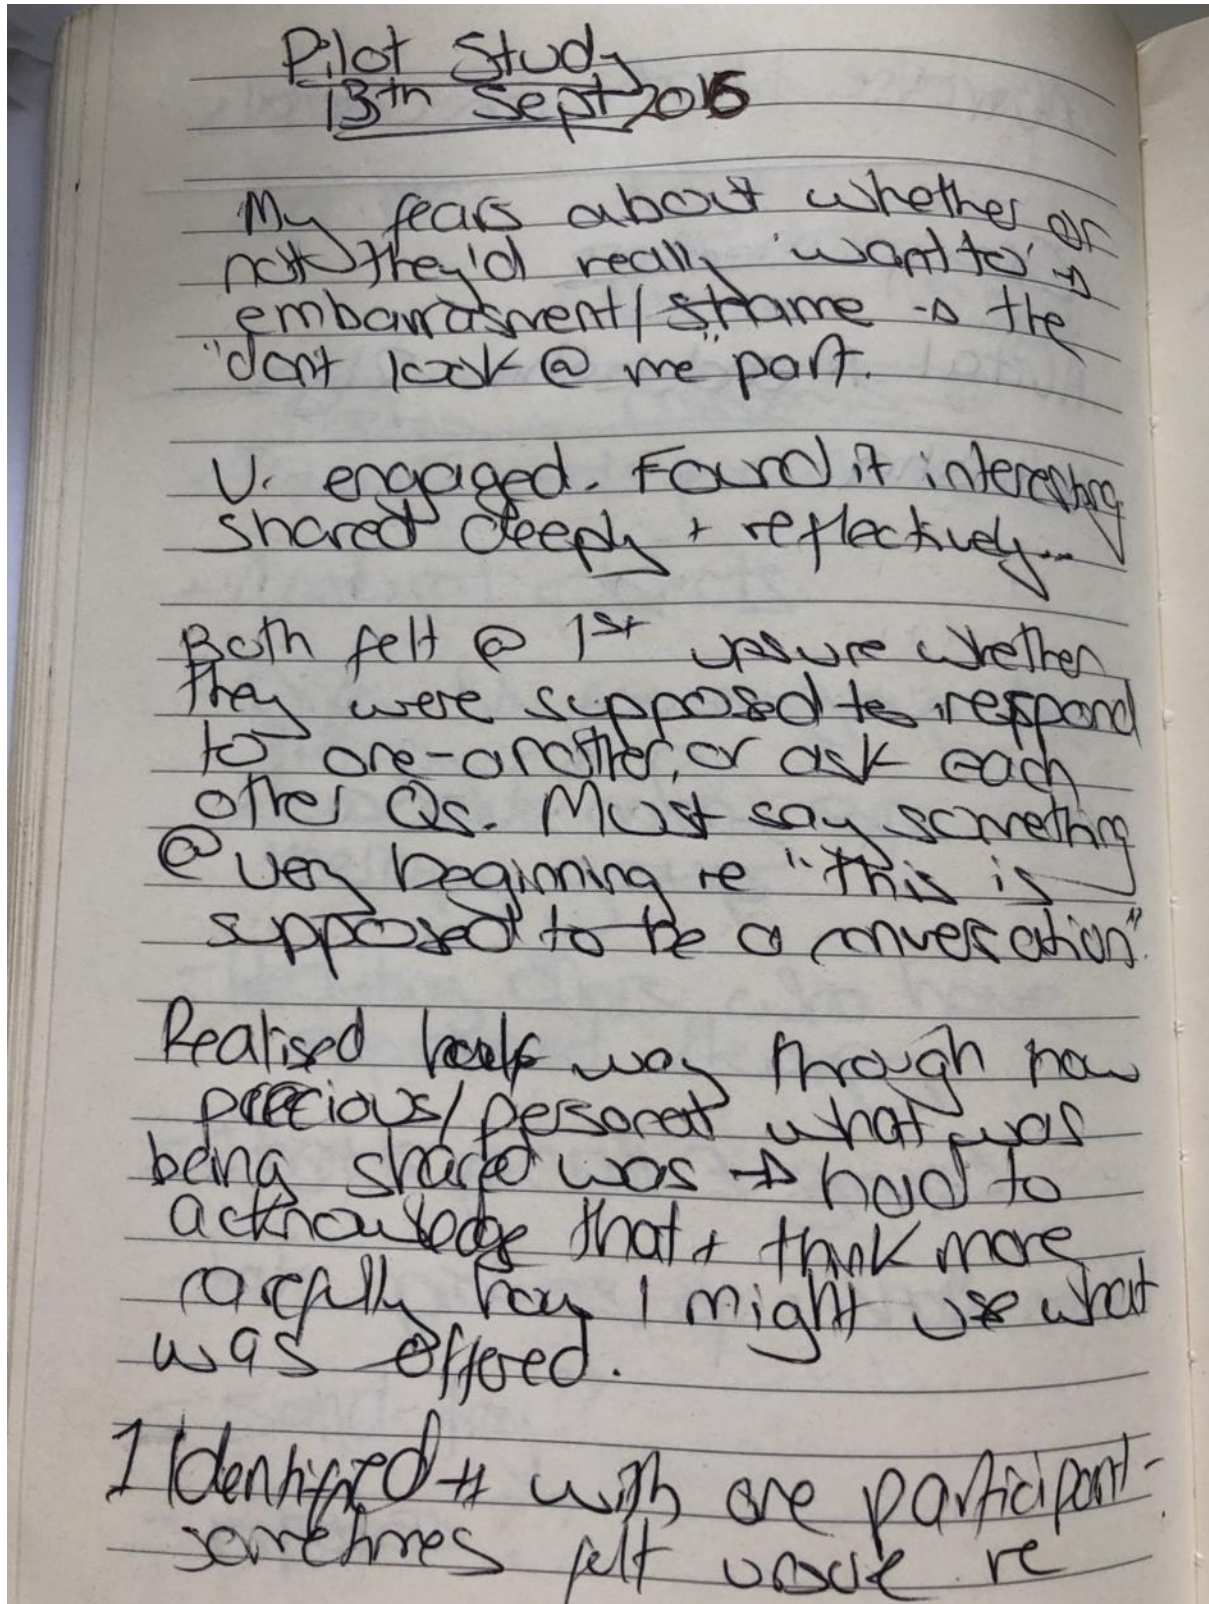 Pilot Study
13th Sept 2016
My fears about whether or
not they'd really 'want to' →
embarrasment/shame → the
"dont look @ me" part.
V. engaged. Found it interesting
shared deeply + reflectively...
Both felt @ 1st unsure whether
they were supposed to respond
to one-another, or ask each
other Qs. Must say something
@ very beginning re "this is
supposed to be a conversation".
Realised half way through how
precious/personal what was
being shared was → had to
acknowledge that + think more
carefully how I might use what
was offered.
I Identified with one participant -
sometimes felt unsure re